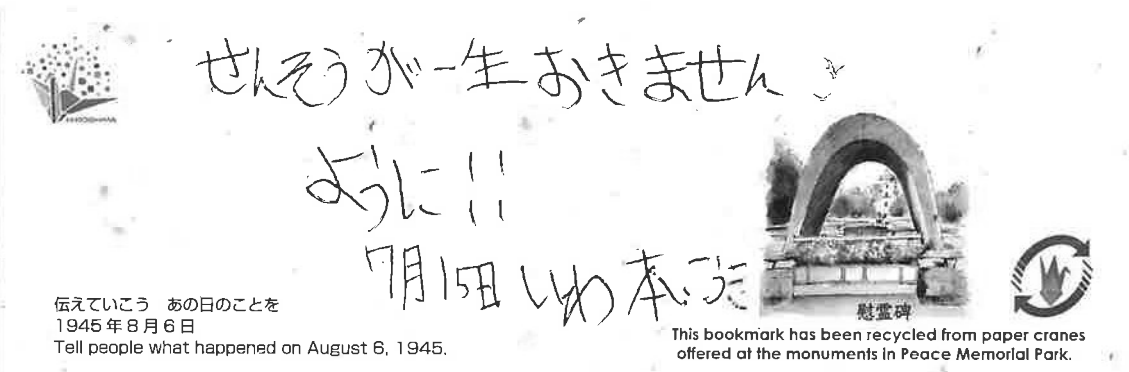 せんそうが一生おきません
ように!!
7月15日 いわ本こうた
伝えていこう あの日のことを
1945年8月6日
Tell people what happened on August 6, 1945.
HIROSHIMA
慰霊碑
This bookmark has been recycled from paper cranes
offered at the monuments in Peace Memorial Park.